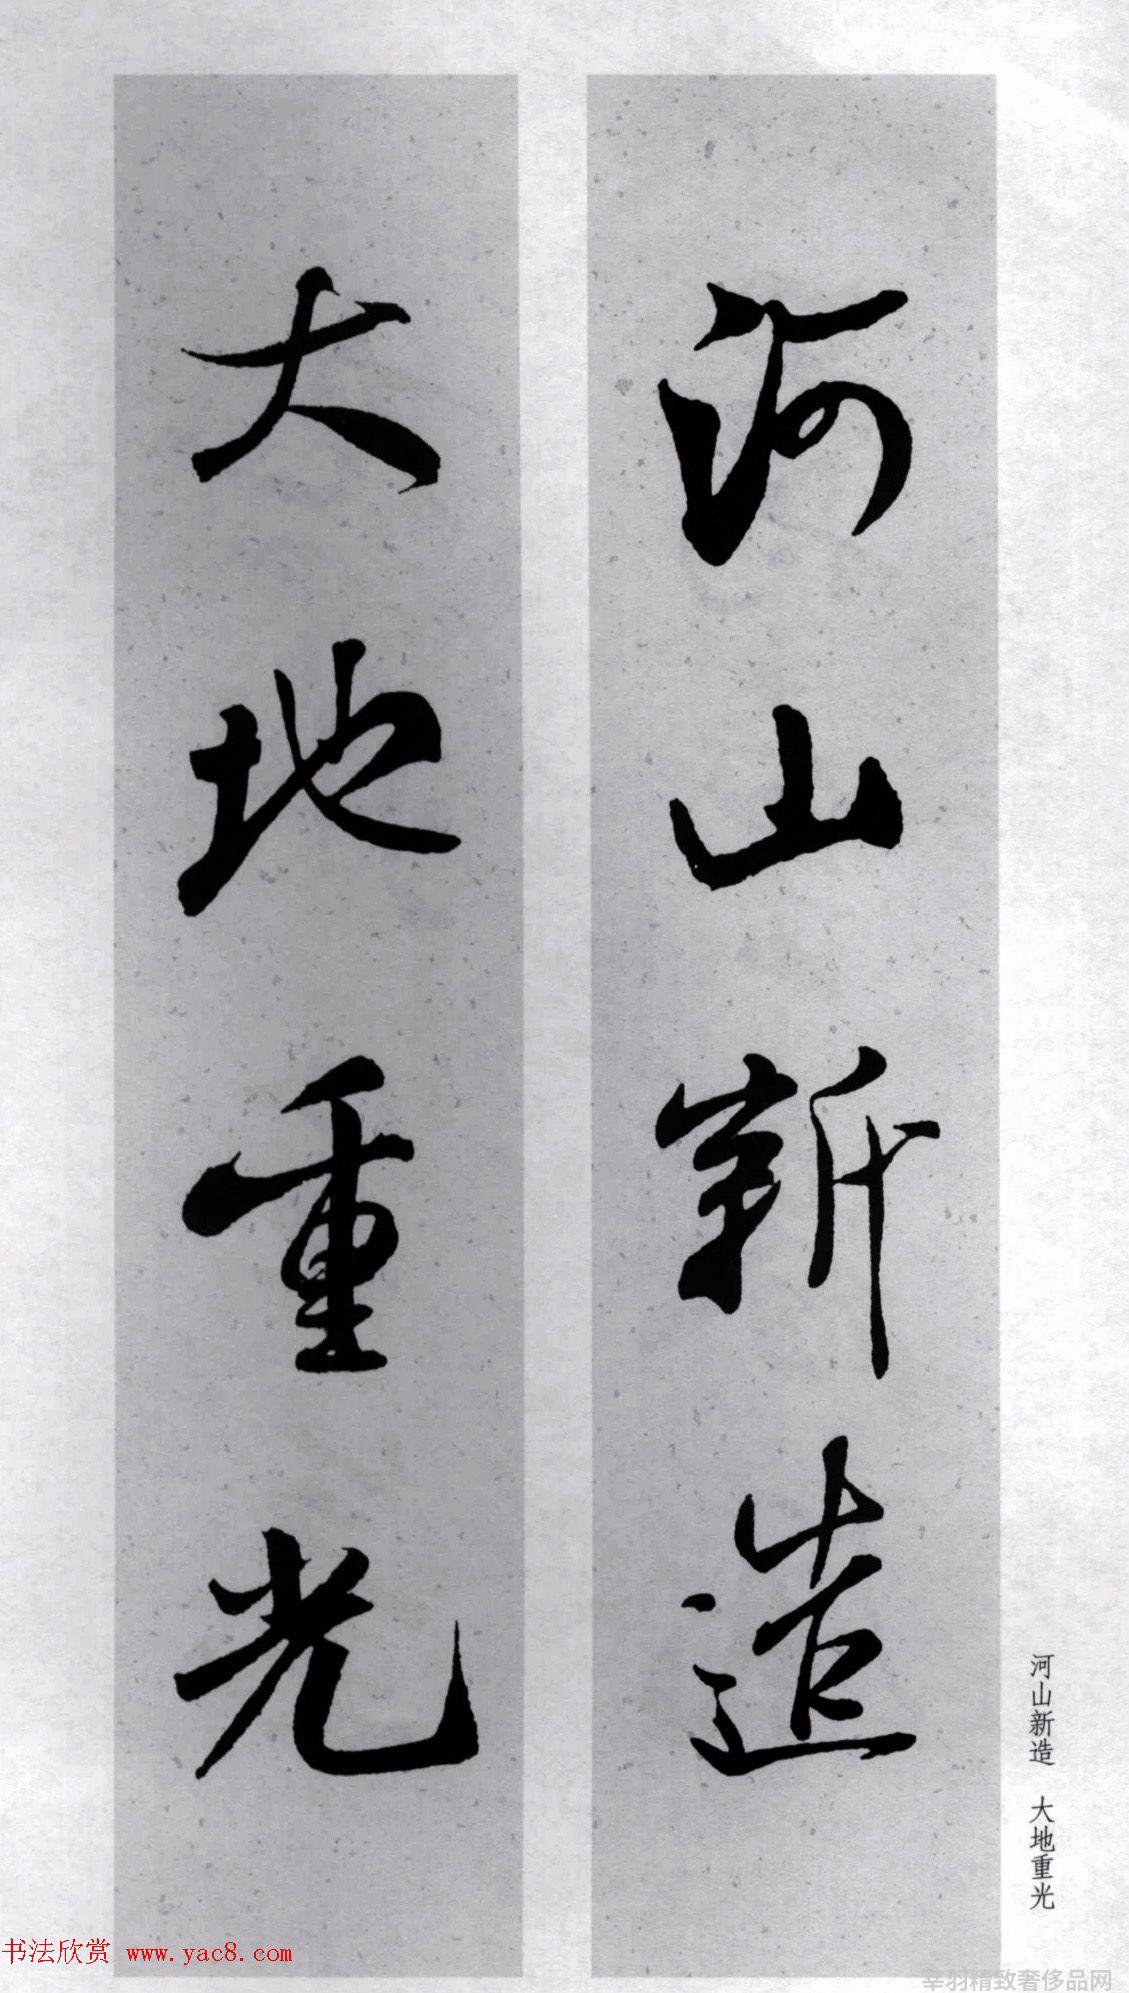 河山新造
大地重光
河山新造 大地重光
书法欣赏 www.yac8.com
幸羽精致奢侈品网